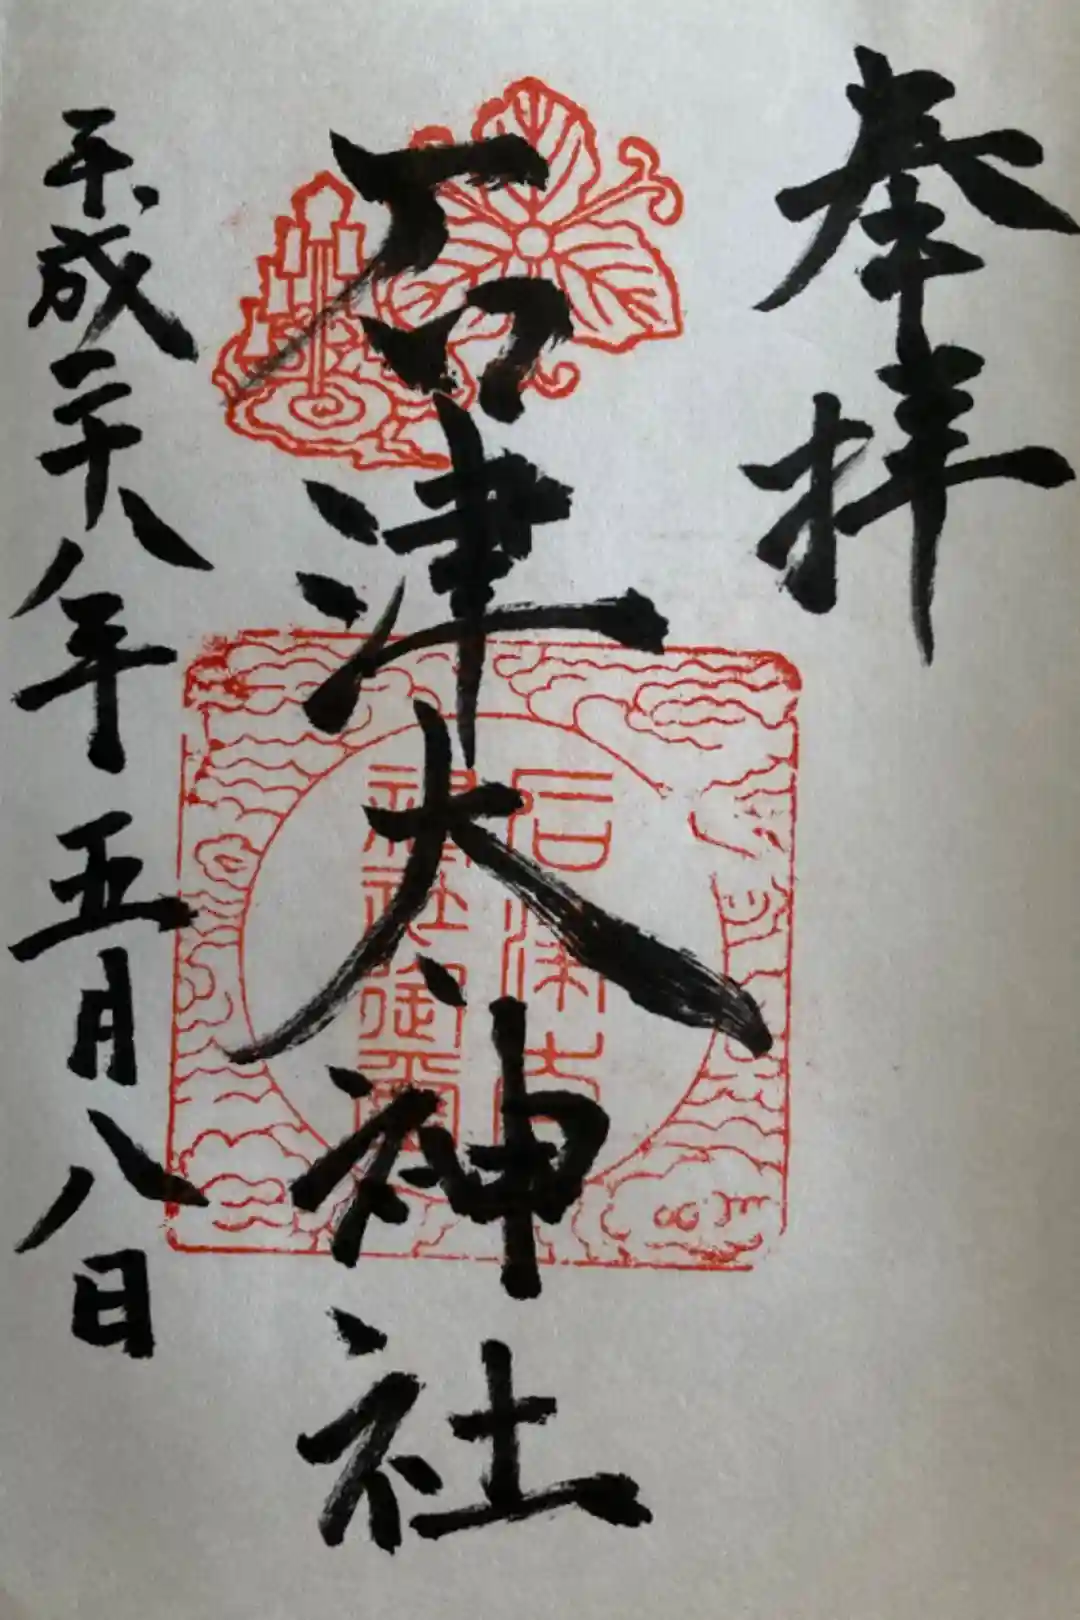 奉拝
石津太神社
平成二十八年五月八日
石津太
神社御璽